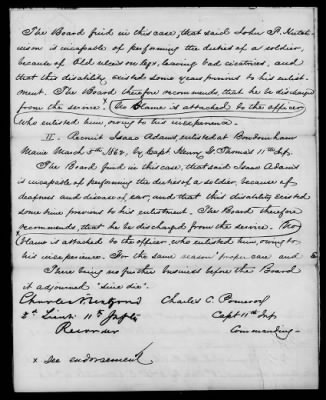 The Board find in this case, that said John A. Hutch-
inson is incapable of performing the duties of a soldier,
because of Old ulcers on legs, leaving bad cicatrices, and
that this disability existed some years previous to his enlist-
ment. The Board therefore recommends, that he be discharged
from the service. No Blame is attached to the officer
who enlisted him, owing to his inexperience.
II. Recruit Isaac Adams, enlisted at Bowdoinham
Maine March 5th 1864, by Capt Henry G. Thomas 11th Inf.
The Board find in this case, that said Isaac Adams
is incapable of performing the duties of a soldier, because of
deafness and disease of ear, and that this disability existed
some time, previous to his enlistment. The Board therefore
recommends, that he be discharged from the service. No
blame is attached to the officer, who enlisted him, owing to
his inexperience. For the same reason "proper care" and
There being no further business before the Board
it adjourned "sine die".
Charles C. Pomeroy
2d Lieut. 11th Inftr. Capt 11th Inf.
Recorder Commanding
x See endorsement